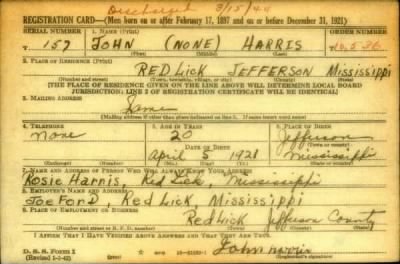 Discharged 3/15/44
REGISTRATION CARD—(Men born on or after February 17, 1897 and on or before December 31, 1921)
SERIAL NUMBER 1. NAME (Print) ORDER NUMBER
T 157 JOHN (NONE) HARRIS 10,536
(First) (Middle) (Last)
2. PLACE OF RESIDENCE (Print)
RED Lick JEFFERSON Mississippi
(Number and street) (Town, township, village, or city) (County) (State)
[THE PLACE OF RESIDENCE GIVEN ON THE LINE ABOVE WILL DETERMINE LOCAL BOARD
JURISDICTION; LINE 2 OF REGISTRATION CERTIFICATE WILL BE IDENTICAL]
3. MAILING ADDRESS
Same
[Mailing address if other than place indicated on line 2. If same insert word same]
4. TELEPHONE 5. AGE IN YEARS 6. PLACE OF BIRTH
none 20 Jefferson
DATE OF BIRTH (Town or county)
April 5 1921 Mississippi
(Exchange) (Number) (Mo.) (Day) (Yr.) (State or country)
7. NAME AND ADDRESS OF PERSON WHO WILL ALWAYS KNOW YOUR ADDRESS
Rosie Harris, Red Lick, Mississippi
8. EMPLOYER'S NAME AND ADDRESS
Joe Ford, Red Lick, Mississippi
9. PLACE OF EMPLOYMENT OR BUSINESS
Red Lick Jefferson County
(Number and street or R. F. D. number) (Town) (County) (State)
I AFFIRM THAT I HAVE VERIFIED ABOVE ANSWERS AND THAT THEY ARE TRUE.
D. S. S. Form 1
(Revised 1-3-42) (over) John Harris